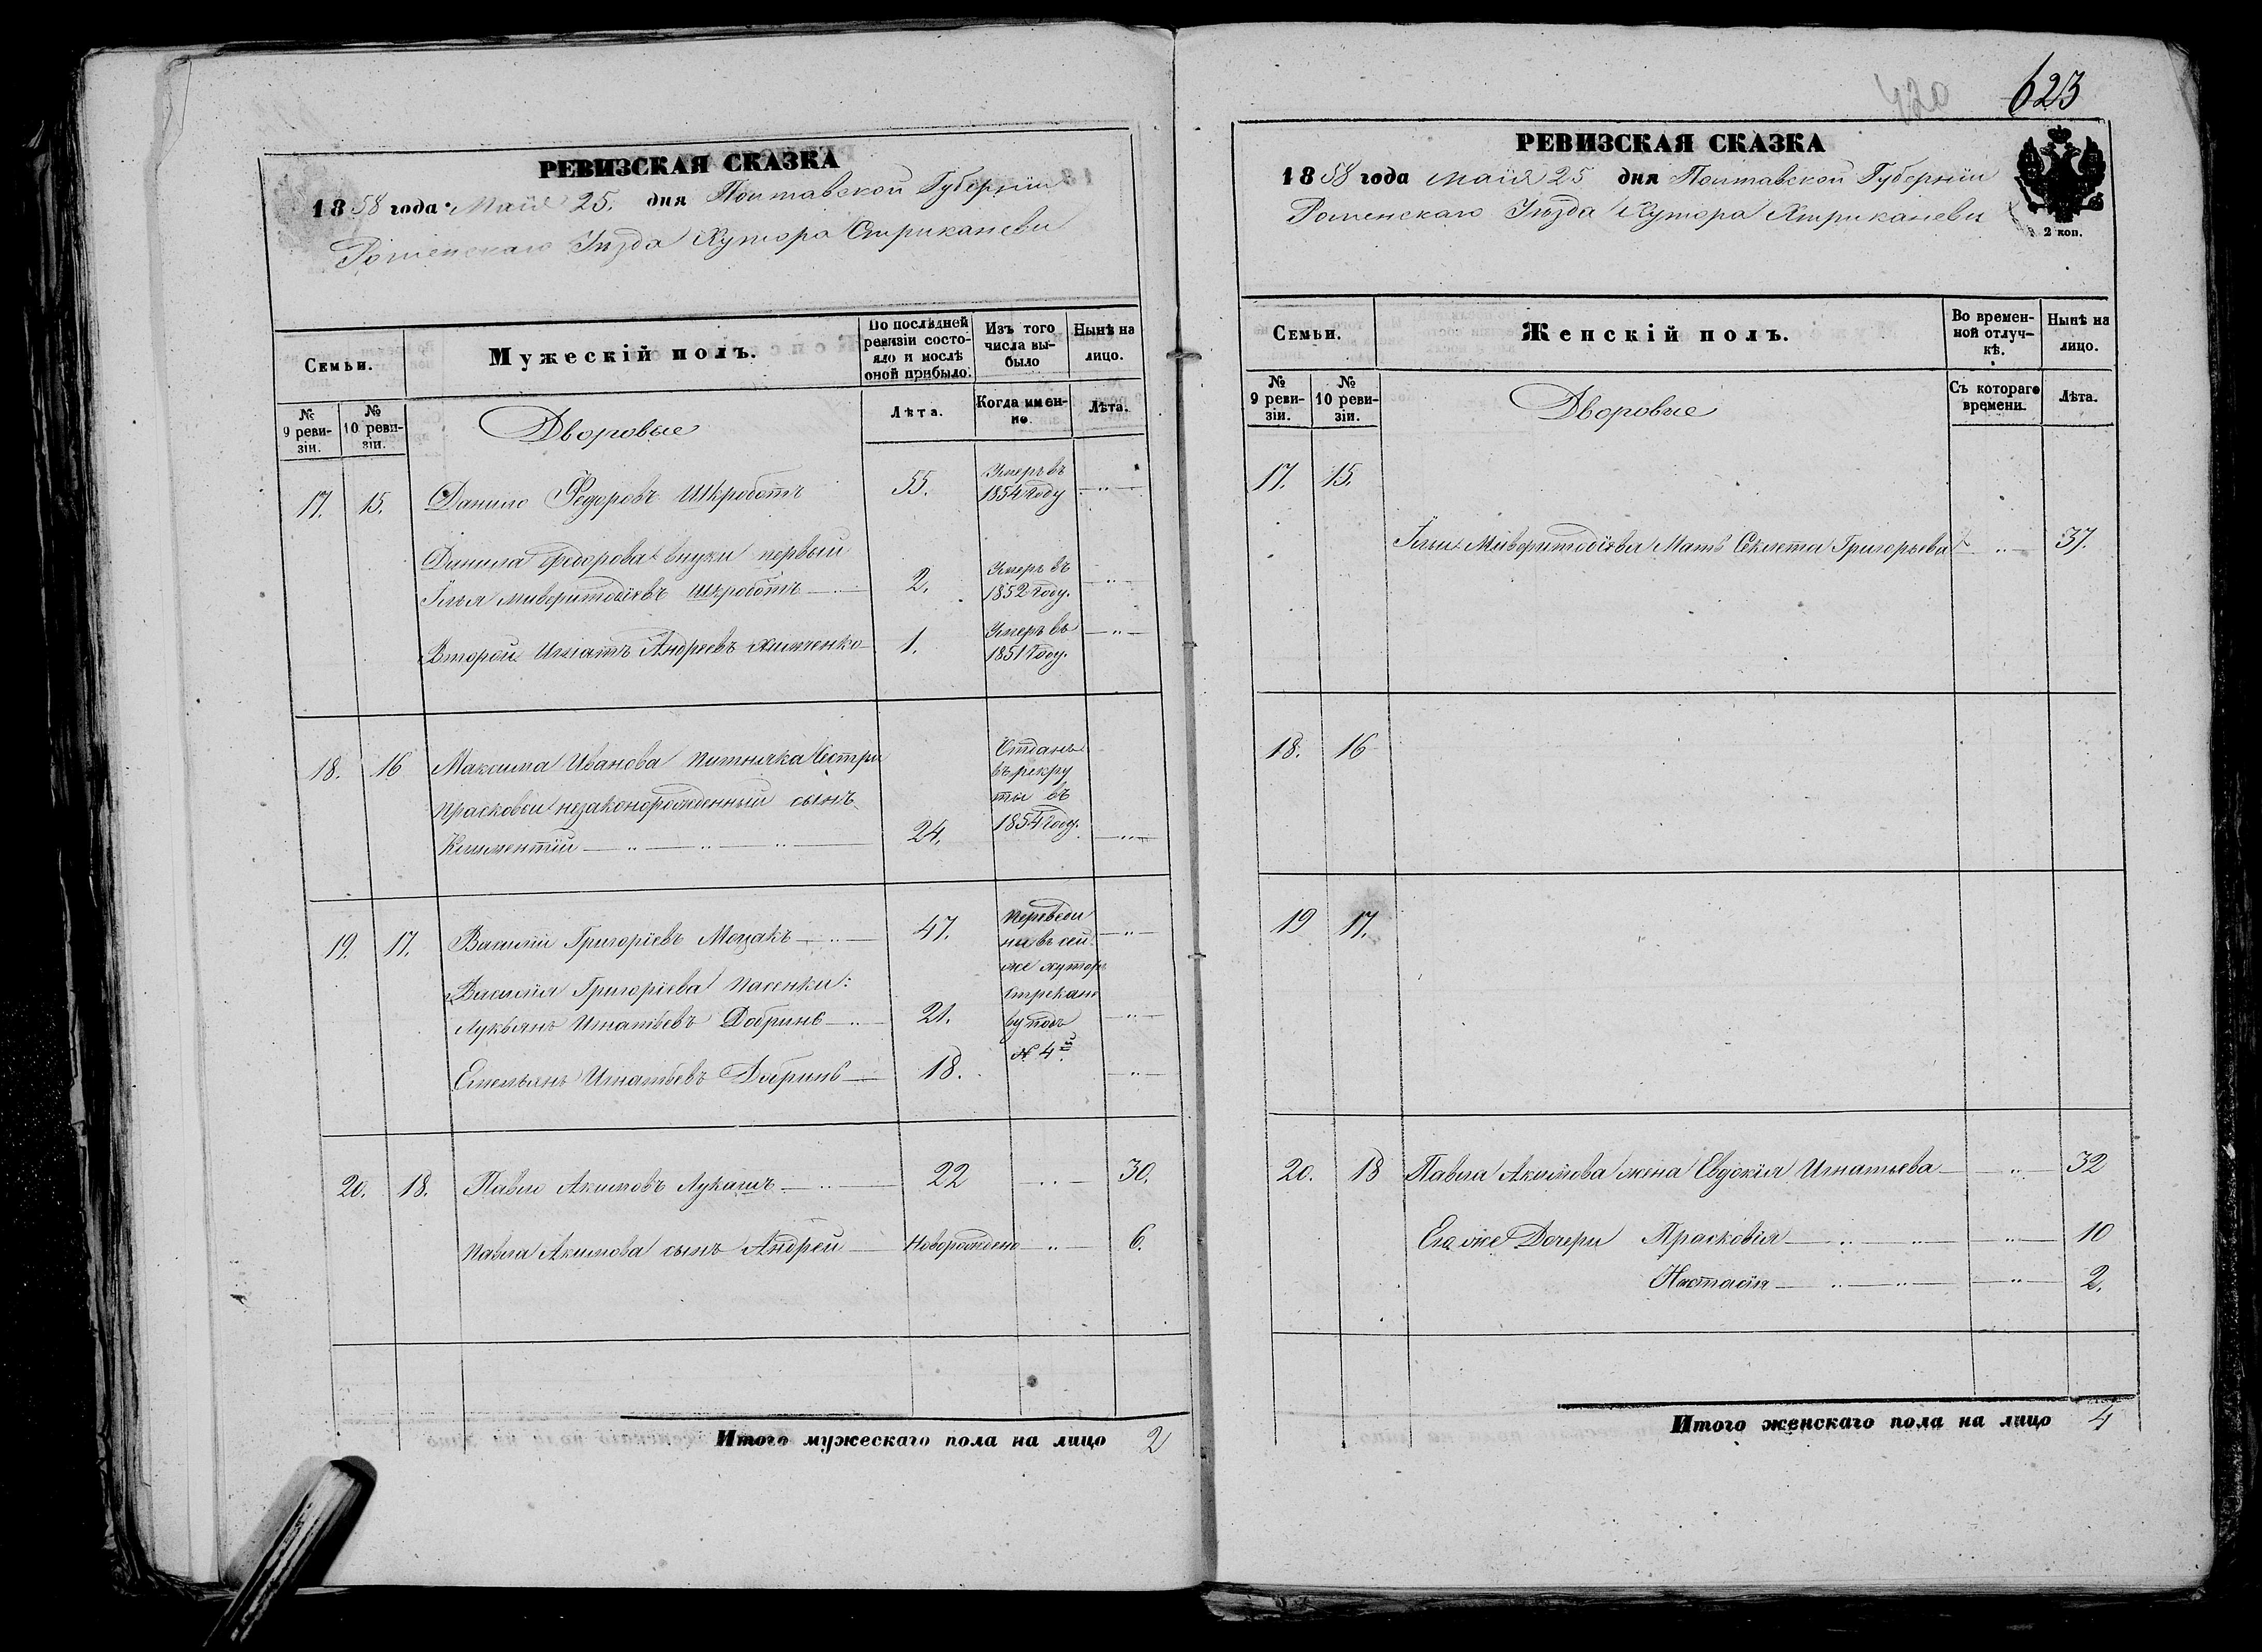 РЕВИЗСКАЯ СКАЗКА
1858 года Маія 25. дня Полтавской Губерніи
Роменскаго Уѣзда Хутора Стрикачеви
Семьи.
Мужескій полъ.
По послѣдней ревизіи состояло и послѣ оной прибыло.
Изъ того числа выбыло
Нынѣ на лицо.
№ 9 ревизіи.
№ 10 ревизіи.
Дворовые
Лѣта.
Когда именно.
Лѣта.
17. 15. Данило Федоровъ Шкроботъ 55. Умеръ въ 1854 году
Данила Федорова внуки первый
Илья Шкроботъ 2. Умеръ въ 1852 году.
Второй Игнатъ Андреевъ 1. Умеръ въ 1851 году.
18. 16 Максима Иванова Сестри
Прасковьи незаконорожденный сынъ
Климентий 24. Отданъ въ рекруты въ 1854 году.
19. 17. Василий Григоріевъ Моцакъ 47. Переведены въ сем же хуторѣ
Василія Григоріева пасенки:
Лукьянъ Игнатьевъ Добринь 21.
Емельянъ Игнатьевъ Добринь 18. подъ № 4й
20. 18. Павло Акимовъ Лукашъ 22 30.
Павла Акимова сынъ Андрей Новорожденъ 6.
Итого мужескаго пола на лицо 2
420
623
РЕВИЗСКАЯ СКАЗКА
1858 года маія 25 дня Полтавской Губерніи
Роменскаго Уѣзда Хутора
2 коп.
Семьи.
Женскій полъ.
Во временной отлучкѣ.
Нынѣ на лицо.
№ 9 ревизіи.
№ 10 ревизіи.
Дворовые
Съ котораго времени.
Лѣта.
17. 15.
Ильи Мать Секлета Григорьева 37.
18. 16
19 17.
20. 18 Павла Акимова жена Евдокія Игнатьева 32
Его же Дочери Прасковія 10
Настасія 2.
Итого женскаго пола на лицо 4